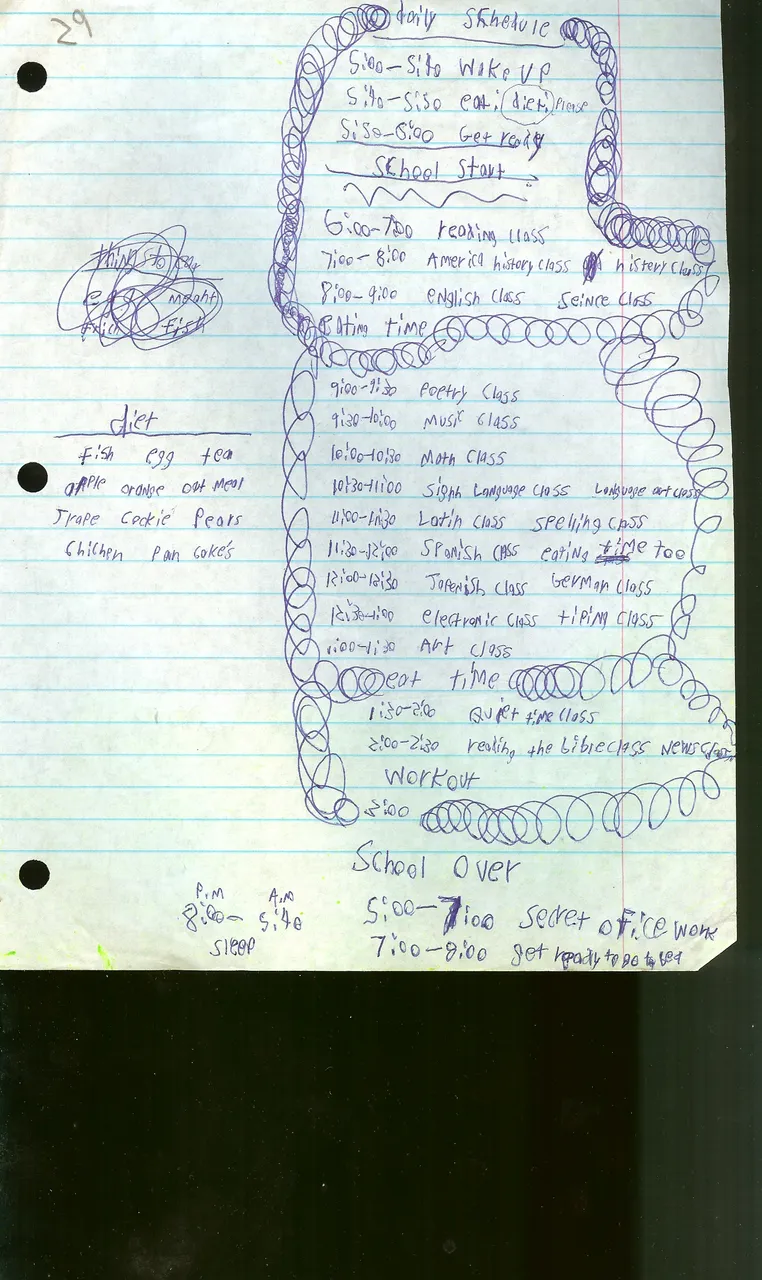 29
daily Skhedule
5:00-5:40 Wake UP
5:40-5:50 eat: diet: Please
5:50-6:00 Get ready
Skhool Start
6:00-7:00 reading class
7:00-8:00 America history class history class
8:00-9:00 english Class Seince Class
eating time
things to eat
egg meaht
fish
9:00-9:30 Poetry Class
9:30-10:00 Music Class
10:00-10:30 Math Class
10:30-11:00 Sighn Language Class Language art class
11:00-11:30 Latin Class Spelling class
11:30-12:00 Spanish Class eating time too
12:00-12:30 Japenish Class German Class
12:30-1:00 electronic Class tiping Class
1:00-1:30 Art Class
diet
fish egg tea
apple orange oat meal
Grape Cookie Pears
Chichen Pan Cake's
eat time
1:30-2:00 Quiet time Class
2:00-2:30 reading the bible class News Class
Workout
3:00
School Over
P.M A.M
8:00- 5:40
Sleep
5:00-7:00 Secret ofice work
7:00-8:00 get ready to go to bed